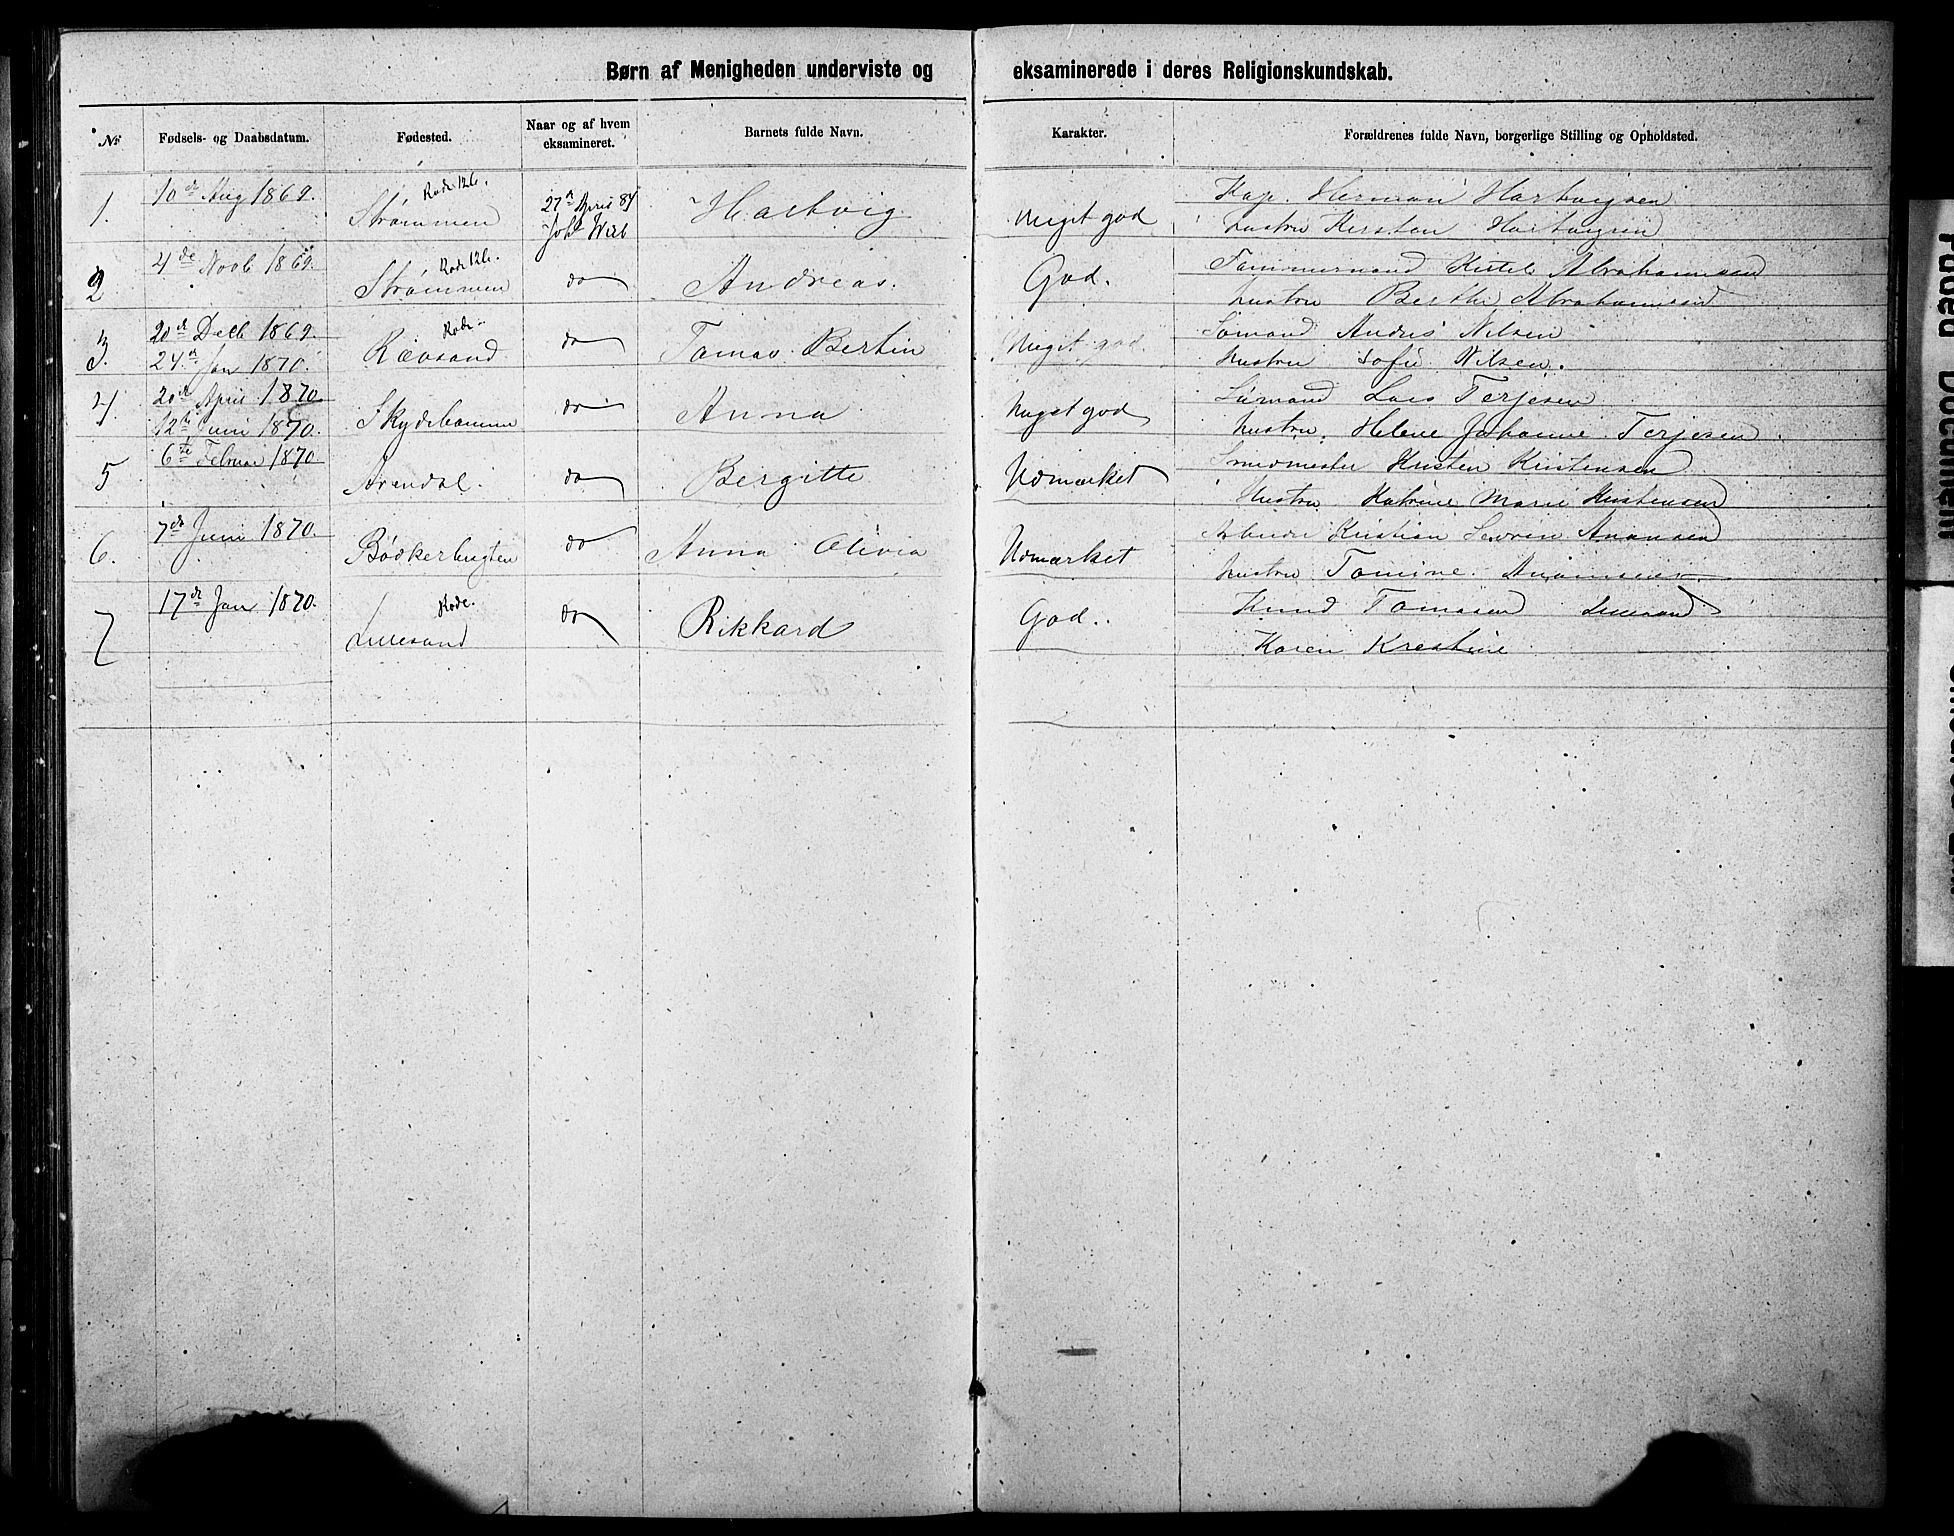 Børn af Menigheden underviste og eksaminerede i deres Religionskundskab.
№ Fødsels- og Daabsdatum. Fødested. Naar og af hvem eksamineret. Barnets fulde Navn. Karakter. Forældrenes fulde Navn, borgerlige Stilling og Opholdsted.
1. 10de Aug 1869. Strømmen 27de April 84 Hartvig. Meget god Kap. Herman Hartvigsen
hustru Kersten Hartvigsen
2 4de Novb 1869. Strømmen do Andreas. God. Tømmermand Ketel Abrahamsen
hustru Berthe Abrahamsen
3. 20de Decb 1869. Rævesand do Tomas Bertin Meget god. Sømand Andres Nilsen
24de Jan 1870. hustru Sofie Nilsen.
4. 20de April 1870 do Anna Meget god Sømand Lars Terjesen
12te Juni 1870. hustru Helene Johanne Terjesen.
5 6te Februar 1870 Arendal. do Bergitte Udmærket Smedmester Kristen Kristensen
Hustru Katrine Marie Kristensen
6. 7de Juni 1870. Bødkerbugten do Anna Olivia Udmærket Kristian Severin
hustru Tomine
7 17de Jan 1870. Lillesand do Rikkard God. Knud Tomasen
Karen Krestine
Faded Document